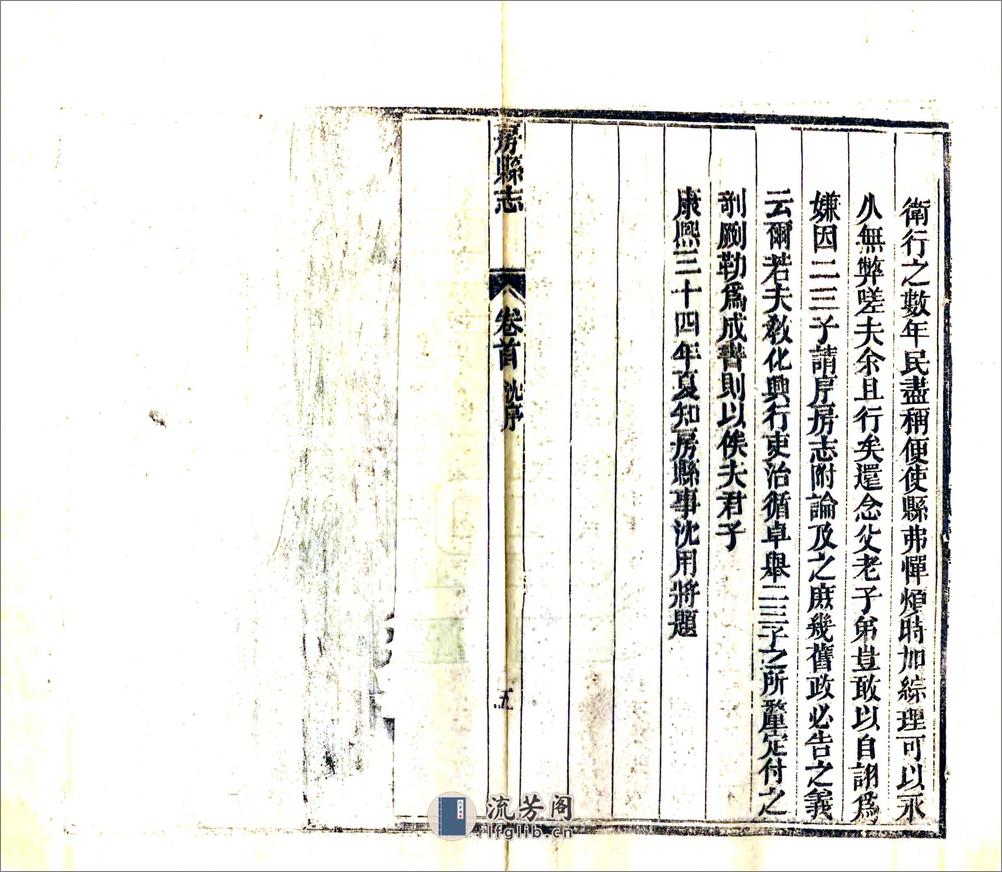 衛行之數年民盡稱便使縣弗憚煩時加綜理可以永
久無弊嗟夫余且行矣還念父老子弟豈敢以自詡爲
嫌因二三子請序房志附論及之庶幾舊政必告之義
云爾若夫敎化興行吏治循卓舉二三子之所釐定付之
剞劂勒爲成書則以俟夫君子
康熙三十四年夏知房縣事沈用將題
房縣志
卷首 沈序
五
流芳阁
lfglib.cn